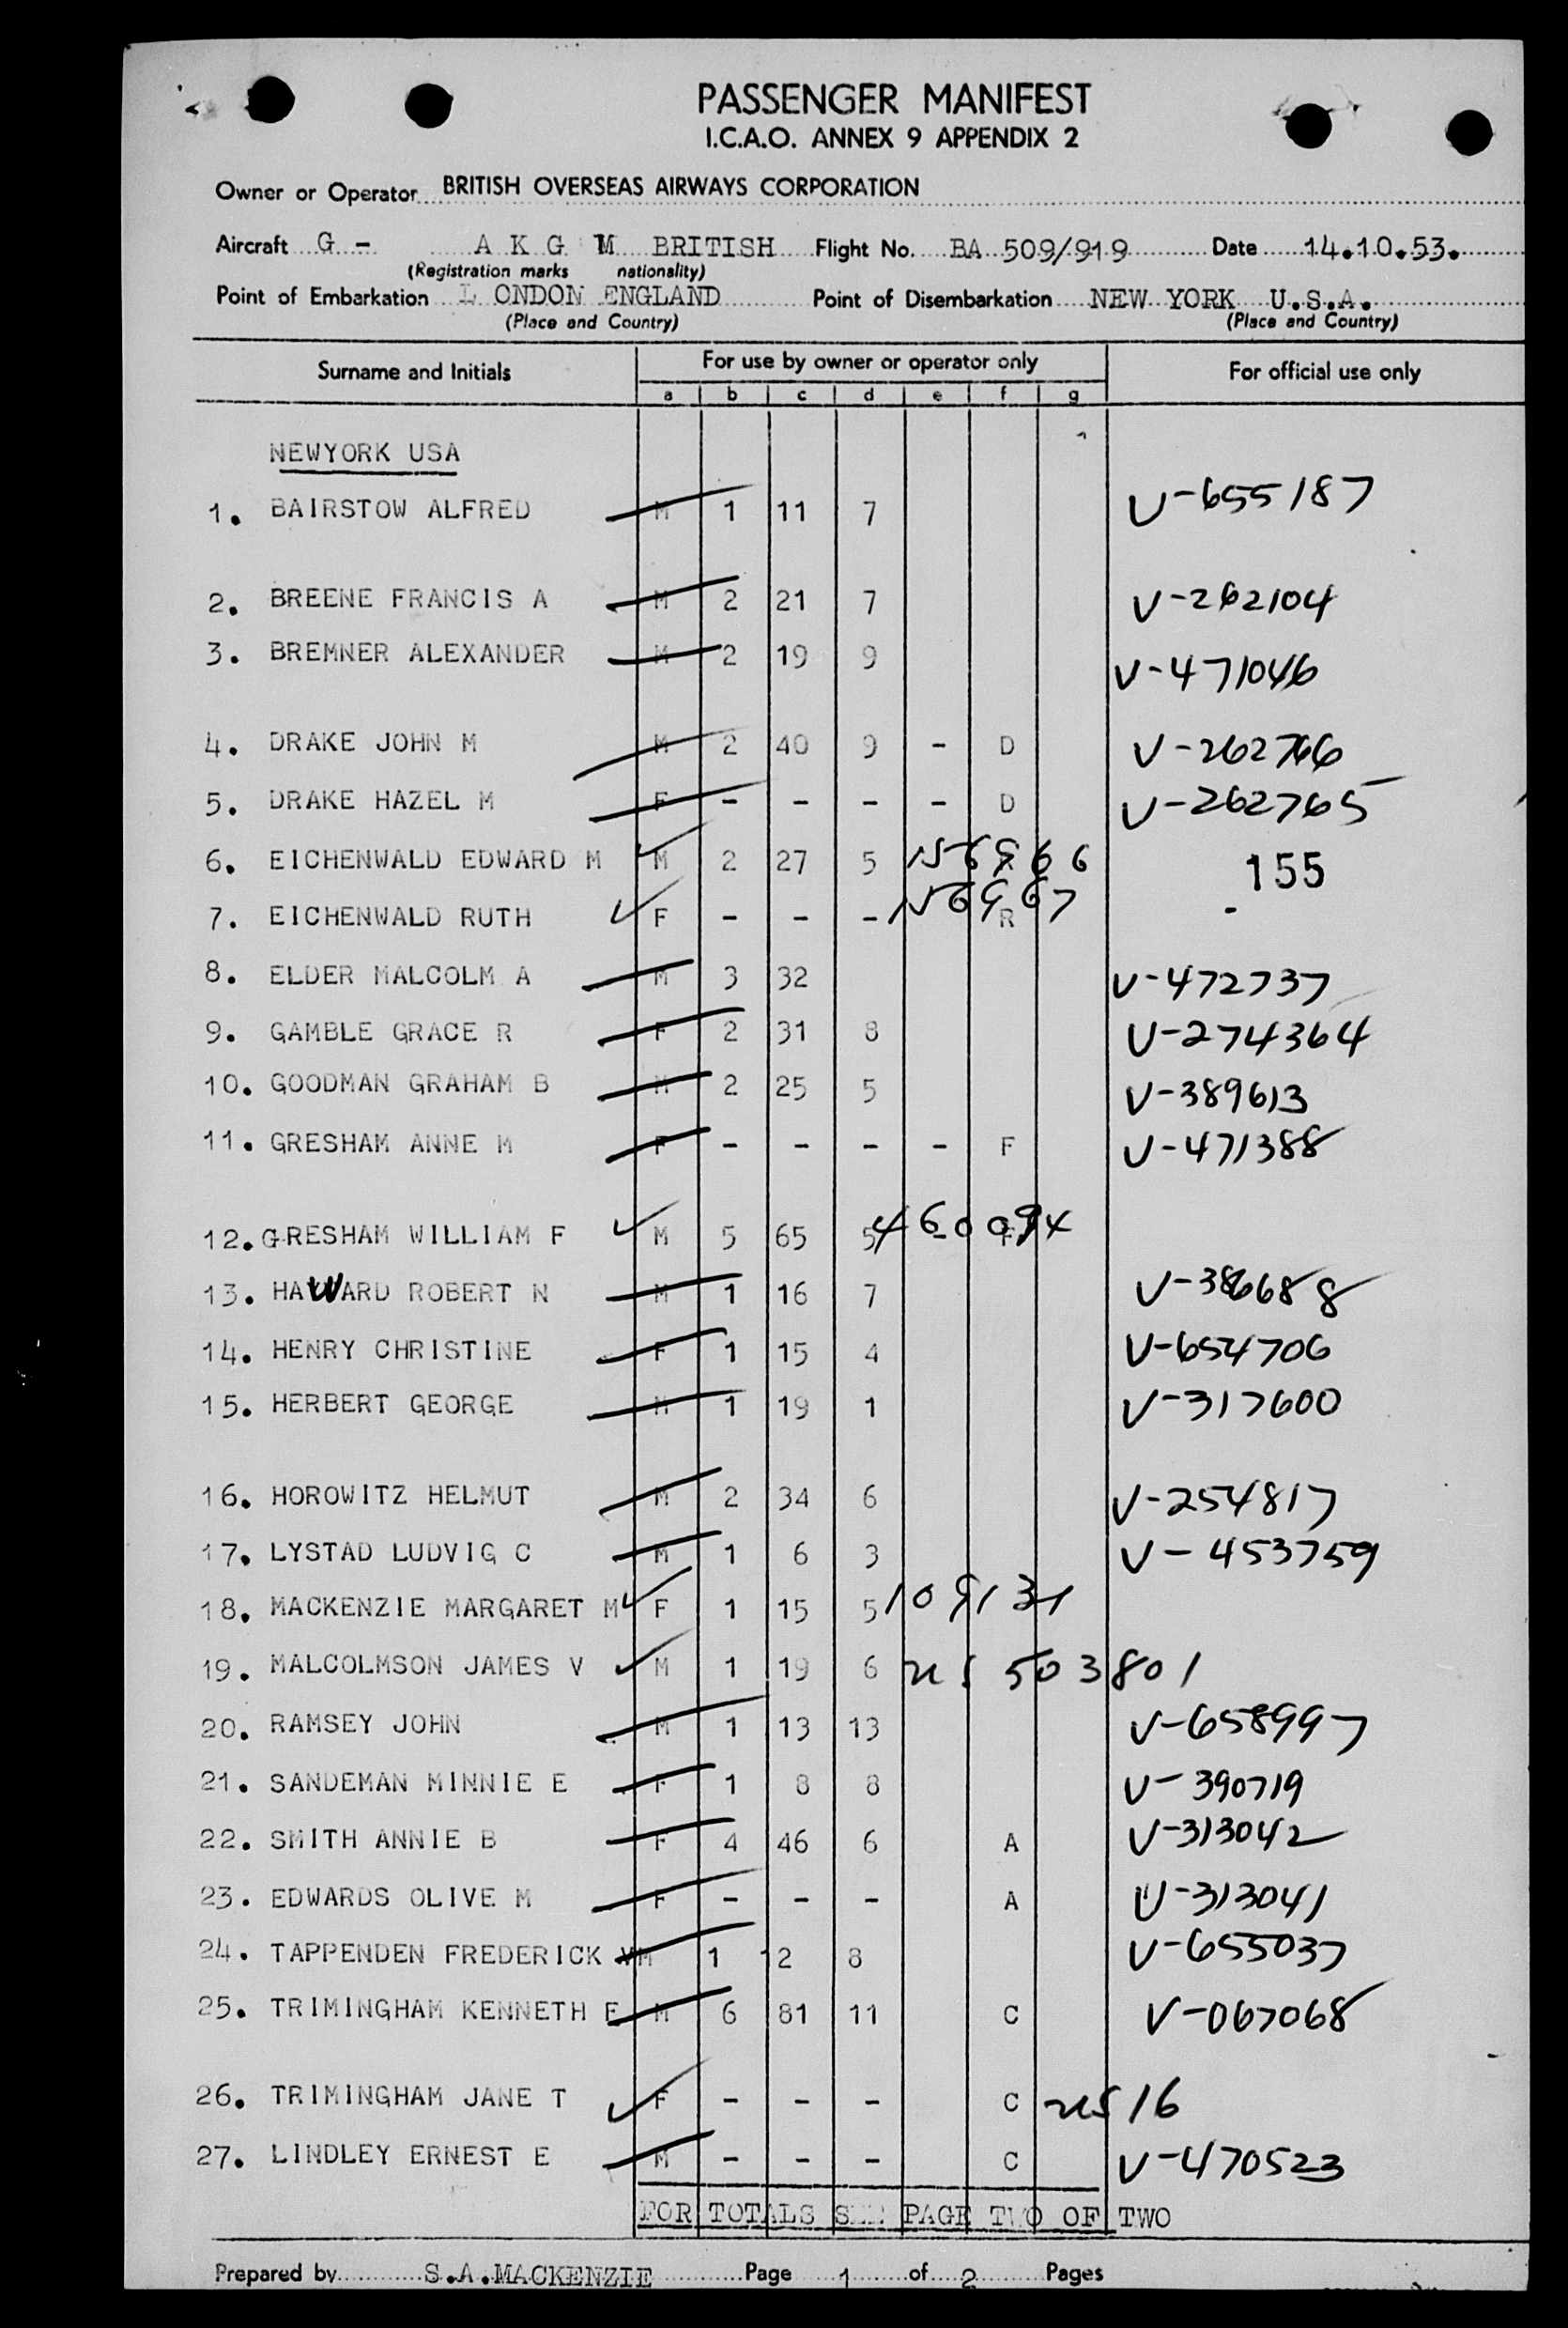 PASSENGER MANIFEST
I.C.A.O. ANNEX 9 APPENDIX 2
Owner or Operator BRITISH OVERSEAS AIRWAYS CORPORATION
Aircraft G - A K G M BRITISH Flight No. BA 509/919 Date 14.10.53.
(Registration marks nationality)
Point of Embarkation L ONDON ENGLAND Point of Disembarkation NEW YORK U.S.A.
(Place and Country) (Place and Country)
Surname and Initials For use by owner or operator only For official use only
a b c d e f g
NEWYORK USA
1. BAIRSTOW ALFRED M 1 11 7 V-655187
2. BREENE FRANCIS A M 2 21 7 V-262104
3. BREMNER ALEXANDER M 2 19 9 V-471046
4. DRAKE JOHN M M 2 40 9 - D V-262766
5. DRAKE HAZEL M F - - - - D V-262765
6. EICHENWALD EDWARD M M 2 27 5 156966 155
7. EICHENWALD RUTH F - - - 156967 R -
8. ELDER MALCOLM A M 3 32 V-472737
9. GAMBLE GRACE R F 2 31 8 V-274364
10. GOODMAN GRAHAM B M 2 25 5 V-389613
11. GRESHAM ANNE M F - - - - F V-471388
12. GRESHAM WILLIAM F M 5 65 5 - F
13. HAWARD ROBERT N M 1 16 7 V-386688
14. HENRY CHRISTINE F 1 15 4 V-654706
15. HERBERT GEORGE M 1 19 1 V-317600
16. HOROWITZ HELMUT M 2 34 6 V-254817
17. LYSTAD LUDVIG C M 1 6 3 V-453759
18. MACKENZIE MARGARET M F 1 15 5
19. MALCOLMSON JAMES V M 1 19 6 503801
20. RAMSEY JOHN M 1 13 13 V-658997
21. SANDEMAN MINNIE E F 1 8 8 V-390719
22. SMITH ANNIE B F 4 46 6 A V-313042
23. EDWARDS OLIVE M F - - - A V-313041
24. TAPPENDEN FREDERICK V M 1 12 8 V-655037
25. TRIMINGHAM KENNETH E M 6 81 11 C V-067068
26. TRIMINGHAM JANE T F - - - C us 16
27. LINDLEY ERNEST E M - - - C V-470523
FOR TOTALS SEE PAGE TWO OF TWO
Prepared by S.A.MACKENZIE Page 1 of 2 Pages